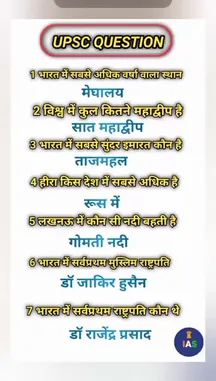 UPSC QUESTION
1 भारत में सबसे अधिक वर्षा वाला स्थान
मेघालय
2 विश्व में कुल कितने महाद्वीप है
सात महाद्वीप
3 भारत में सबसे सुंदर इमारत कौन है
ताजमहल
4 हीरा किस देश में सबसे अधिक है
रूस में
5 लखनऊ में कौन सी नदी बहती है
गोमती नदी
6 भारत में सर्वप्रथम मुस्लिम राष्ट्रपति
डॉ जाकिर हुसैन
7 भारत में सर्वप्रथम राष्ट्रपति कौन थे
डॉ राजेंद्र प्रसाद
IAS